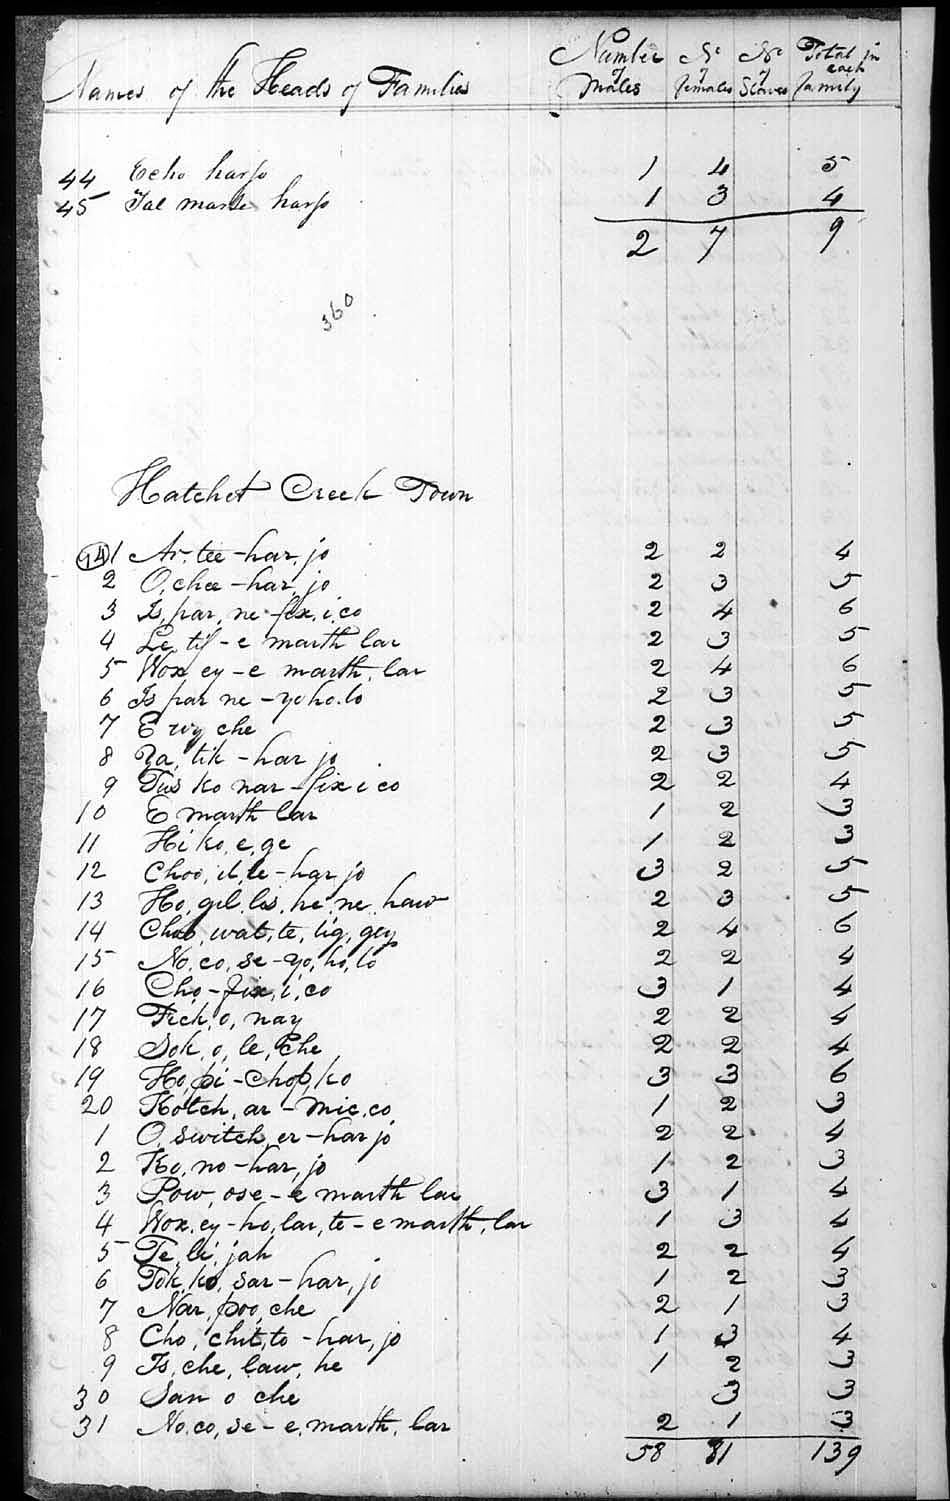 Names of the Heads of Families Number of Males No of females No of Slaves Total in each family
44 Echo harjo 1 4 5
45 Tal marse harjo 1 3 4
2 7 9
360
Hatchet Creek Town
1 Ar, tee - har, jo 2 2 4
2 O, chee - har, jo 2 3 5
3 Is, par, ne - fix, i, co 2 4 6
4 Le, tif - e marth lar 2 3 5
5 Wox ey - e marth, lar 2 4 6
6 Is par ne - yoho, lo 2 3 5
7 E wy che 2 3 5
8 Ya, tik - har jo 2 3 5
9 Tus ko nar - fix i co 2 2 4
10 E marth lar 1 2 3
11 Hi ko, e, ge 1 2 3
12 Choo, il, le - har, jo 3 2 5
13 Ho, gil, lis, he, ne, haw 2 3 5
14 Cho, wat, te, lig, gey 2 4 6
15 No, co, se - yo, ho, lo 2 2 4
16 Cho - fix, i, co 3 1 4
17 Fick, o, nay 2 2 4
18 Sok, o, le, che 2 2 4
19 Ho, pi - chop, ko 3 3 6
20 Kotch, ar - mic, co 1 2 3
1 O, switch, er - har jo 2 2 4
2 Ko, no - har, jo 1 2 3
3 Pow, ose - e marth lar 3 1 4
4 Wox, ey - ho, lar, te - e marth, lar 1 3 4
5 Te, li, jah 2 2 4
6 Tok, ko, sar - har, jo 1 2 3
7 Nar, poo, che 2 1 3
8 Cho, chit, to - har, jo 1 3 4
9 Is, che, law, he 1 2 3
30 San o che 3 3
31 No, co, se - e, marth, lar 2 1 3
58 81 139